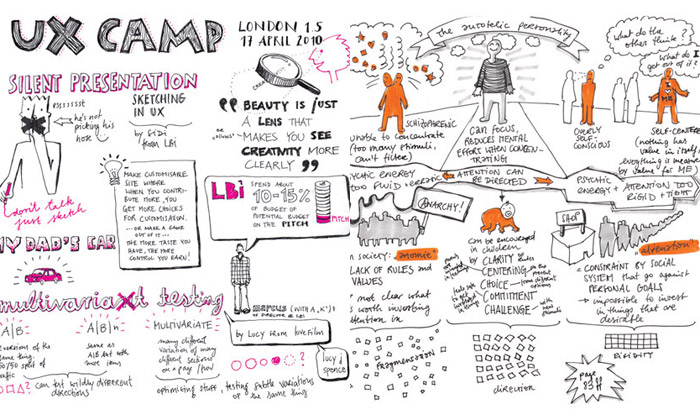 UX CAMP
LONDON 1.5
17 APRIL 2010
SILENT PRESENTATION
he's not
picking his
nose
SKETCHING
IN UX
by
from LBi
don't talk
just sketch
MAKE CUSTOMISABLE
SITE WHERE
WHEN YOU CONTRI-
BUTE MORE, YOU
GET MORE CHOICES
FOR CUSTOMISATION.
... OR MAKE A GAME
OUT OF IT...
THE MORE TASTE YOU
HAVE, THE MORE
CONTROL YOU EARN!
“BEAUTY IS JUST
A LENS THAT
MAKES YOU SEE
CREATIVITY MORE
CLEARLY”
LBi
SPEND ABOUT
10-15%
OF BUDGET OF
POTENTIAL BUDGET
ON THE PITCH
PITCH
MY DAD'S CAR
multivariaXt testing
A|B
versions of the
same thing.
50/50 split of
traffic
A|B|n
same as
A|B but with
more items
MULTIVARIATE
many different
variation of many
different sections
on a page / flow
can test wildly different
directions
optimising stuff, testing subtle variations
of the same thing
MARCUS (WITH A, K")
by LUCY from lovefilm
lucy
spence
the autotelic personality
SCHIZOPHRENIC
unable to concentrate
(too many stimuli,
can't filter)
can focus,
REDUCES MENTAL
EFFORT WHEN CONCEN-
TRATING
what do the
others think?
What do I
get out of it?
I
ME
OVERLY
SELF-
CONSCIOUS
SELF-CENTER
(nothing has
value in itself,
everything is measured
by value for ME)
PSYCHIC ENERGY
TOO FLUID + ERRATIC
ATTENTION CAN
BE DIRECTED
PSYCHIC
ENERGY +
ATTENTION TOO
RIGID + TIGHT
ANARCHY!
in society: "anomie"
LACK OF RULES and
VALUES
not clear what
is worth investing
attention in
can be encouraged
in children
by CLARITY
CENTERING
CHOICE
COMMITMENT
CHALLENGE
SHOP
"alienation"
= CONSTRAINT BY SOCIAL
SYSTEM that go against
PERSONAL GOALS
→ impossible to invest
in things that are
desirable
fragmentation
direction
RIGIDITY
page
83 ff